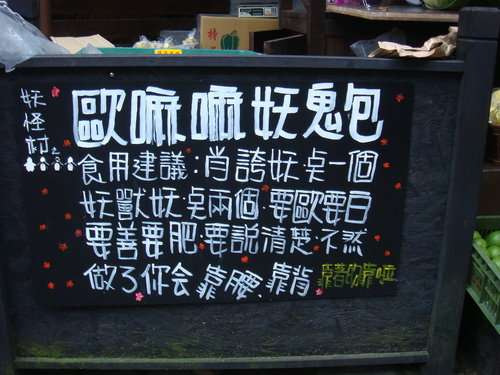 妖怪村
歐嘛嘛妖鬼包
食用建議:肖誇妖桌一個
妖獸妖桌兩個.要歐要白
要善要肥.要說清楚.不然
做了你会 靠腰.靠背 靠著的靠啦